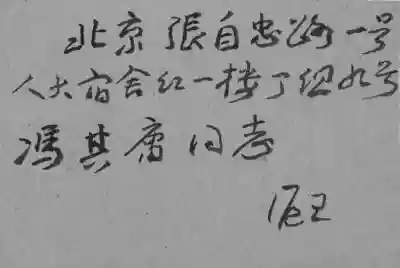 北京張自忠路一号
人大宿舍红一楼丁组九号
馮其庸同志
王